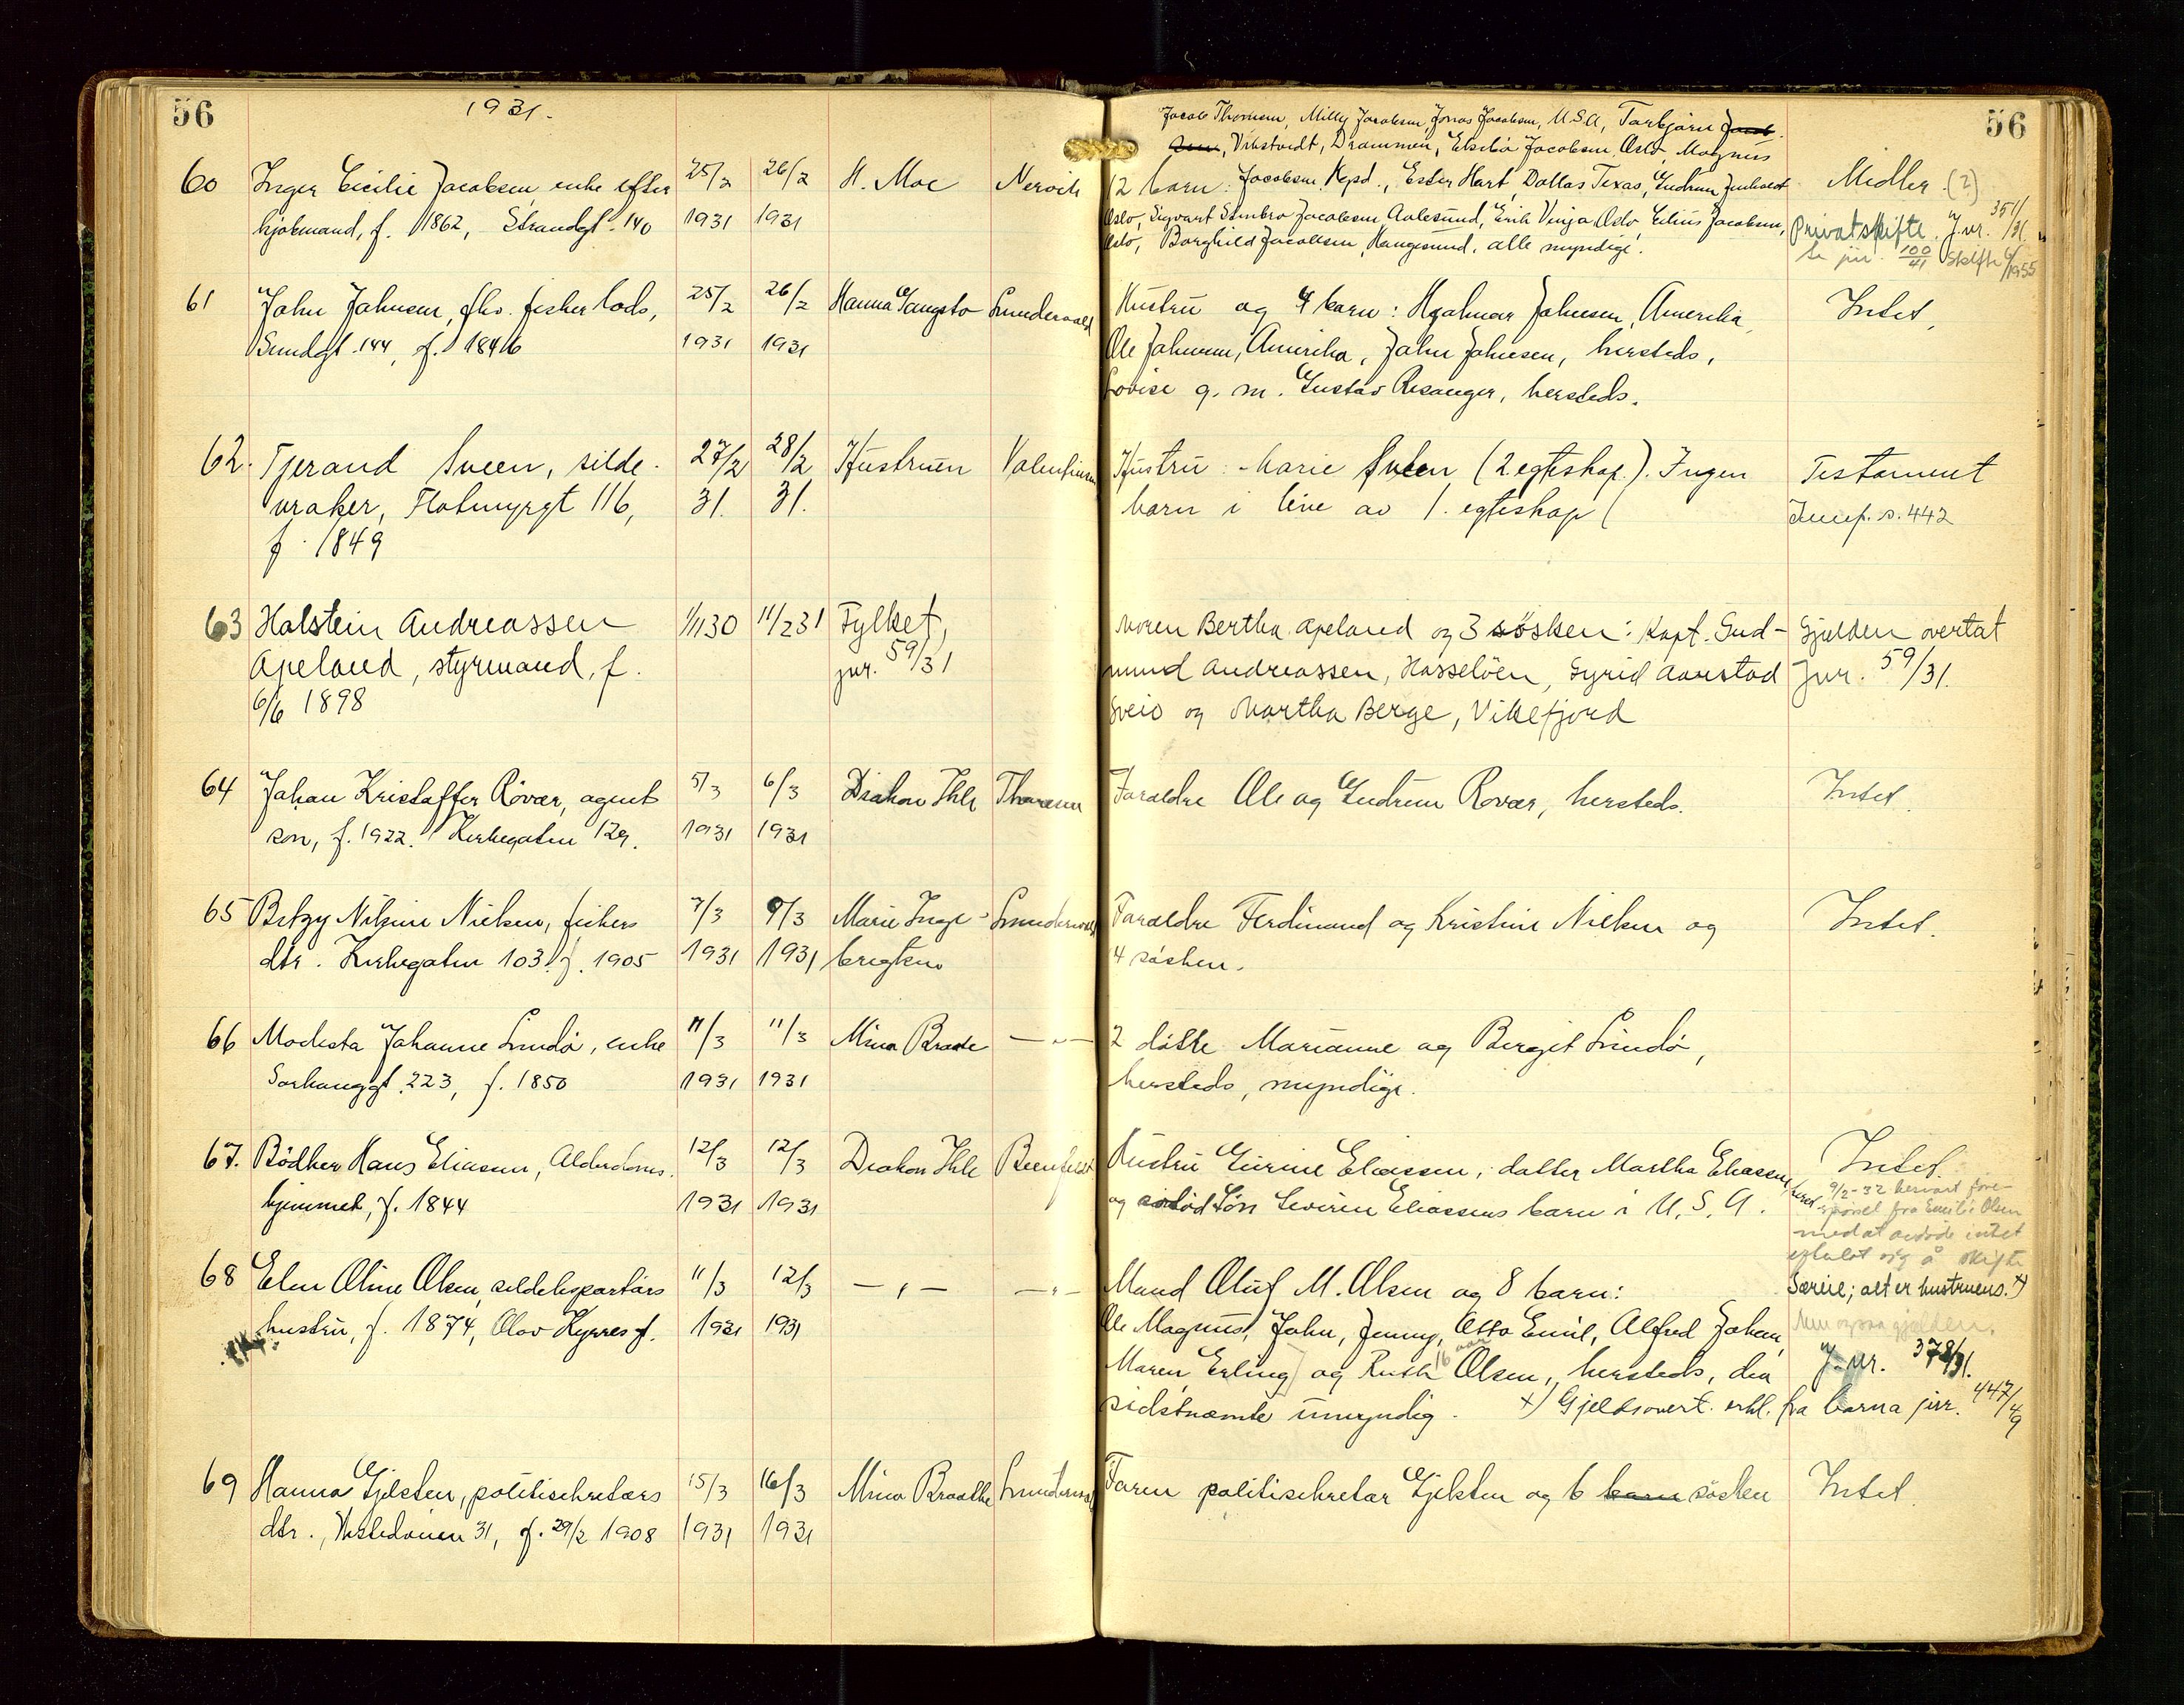 56
1931.
60 Inger Cecilie Jacobsen, enke efter 25/2 26/2 H. Moe Nervik
kjøbmand, f. 1862, Strandgt. 140 1931 1931
61 John Johnsen, fhv. fisker lods, 25/2 26/2 Hanna Gangstø
Sundgt. 144, f. 1846 1931 1931
62. Tjerand Sveen, silde- 27/2 28/2 Hustruen Valentinsen
vraker, Flotmyrgt 116, 31. 31.
f. 1849
63 Halstein Andreassen 1/11 30 11/2 31 Fylket,
Apeland, styrmand, f. jnr. 59/31
6/6 1898
64 Johan Kristoffer Røvær, agent 5/3 6/3 Diakon Ihle Thorsen
søn, f. 1922. Kirkegaten 129. 1931 1931
65 Betzy Nilsine Nielsen, fiskers 7/3 9/3 Marie Inge-
dtr. Kirkegaten 103. f. 1905 1931 1931 brigtsen
66 Modesta Johanne Lindø, enke 11/3 11/3 Mina Braate — " —
Sørhauggt. 223, f. 1850 1931 1931
67. Bødker Hans Eliassen, Alderdoms- 12/3 12/3 Diakon Ihle
hjemmet, f. 1844 1931 1931
68 Elen Oline Olsen, sildeksportørs 11/3 12/3 — " — — " —
hustru, f. 1874, Olav Kyrres gt. 1931 1931
69 Hanna Gjelsten, politisekretærs 15/3 16/3 Mina Braathe
dtr., 31, f. 29/2 1908 1931 1931
56
Jacob Thomsen, Milly Jacobsen, Jonas Jacobsen, U.S.A, Torbjørn
Vikstvedt, Drammen, Jacobsen, Oslo, Magnus
12 barn: Jacobsen, Hgsd., Ester Hart, Dallas Texas, Gudrun Oslo, Sigvart Jacobsen Aalesund, Erik Vinja Oslo, Jacobsen, Midler (2)
Oslo, Borghild Jacobsen, Haugesund, alle myndige. Privatskifte. J.nr. 351/31.
jnr. 100/41 Skifte 1955
Hustru og 4 barn: Hjalmar Johnsen, Amerika, Intet.
Ole Johnsen, Amerika, John Johnsen, hersteds,
Lovise g. m. Gustav Risanger, hersteds.
Hustru: Marie Sveen (2 egteskap). Ingen Testament
barn i live av 1. egteskap ( s. 442
Moren Bertha Apeland og 3 søsken: Kapt. Gud- Gjelden overtat
mund Andreassen, Hasseløen, Syrid Aarstad Jnr. 59/31.
Sveio og Martha Berge, Vikefjord
Foreldre Ole og Gudrun Røvær, hersteds. Intet.
Foreldre Ferdinand og Kristine Nielsen og Intet.
4 søsken.
2 døtre Marianne og Birgit Lindø,
hersteds, myndige.
Hustru Eliassen, datter Martha Eliassen, Intet.
og søn Severin Eliassens barn i U.S.A.
9/2-32 besvart fore-
spørsel fra Emilie Olsen
med at avdøde intet
efterlot sig å skifte
Mand Oluf M. Olsen og 8 barn: Særeie; alt er hustruens. x)
Ole Magnus, John, Jenny, Otto Emil, Alfred Johan,
Maren, Erling og Ruth 16 aar Olsen, hersteds, den J.nr. 378/31.
sidstnævnte umyndig. x) Gjeldsovert. erkl. fra barna jnr. 447/49
Faren politisekretær Gjelsten og 6 barn søsken Intet.